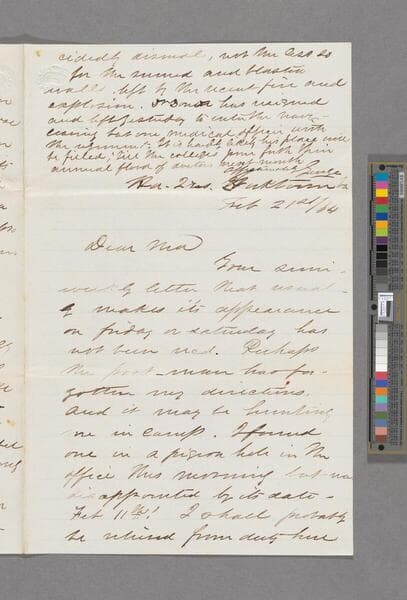 cidedly dismal, not the less so
for the ruined and blasted
walls left by the recent fire and
explosion. has resigned
and left yesterday to enter the navy
but one medical officer with
the regiment. It is hardly likely his place will
be filled, till the colleges pour forth their
annual flood of doctors next month
Hd. Qrs. Yorktown Va
Feb 21st/64
Dear Ma
Your semi-
weekly letter that usual-
ly makes its appearance
on friday or saturday has
not been rec'd. Perhaps
the post-man has for-
gotten my directions.
And it may be hunting
me in camp. I found
one in a pigeon hole in the
office this morning but was
disappointed by its date -
Feb 11th! I shall probably
be relieved from duty here